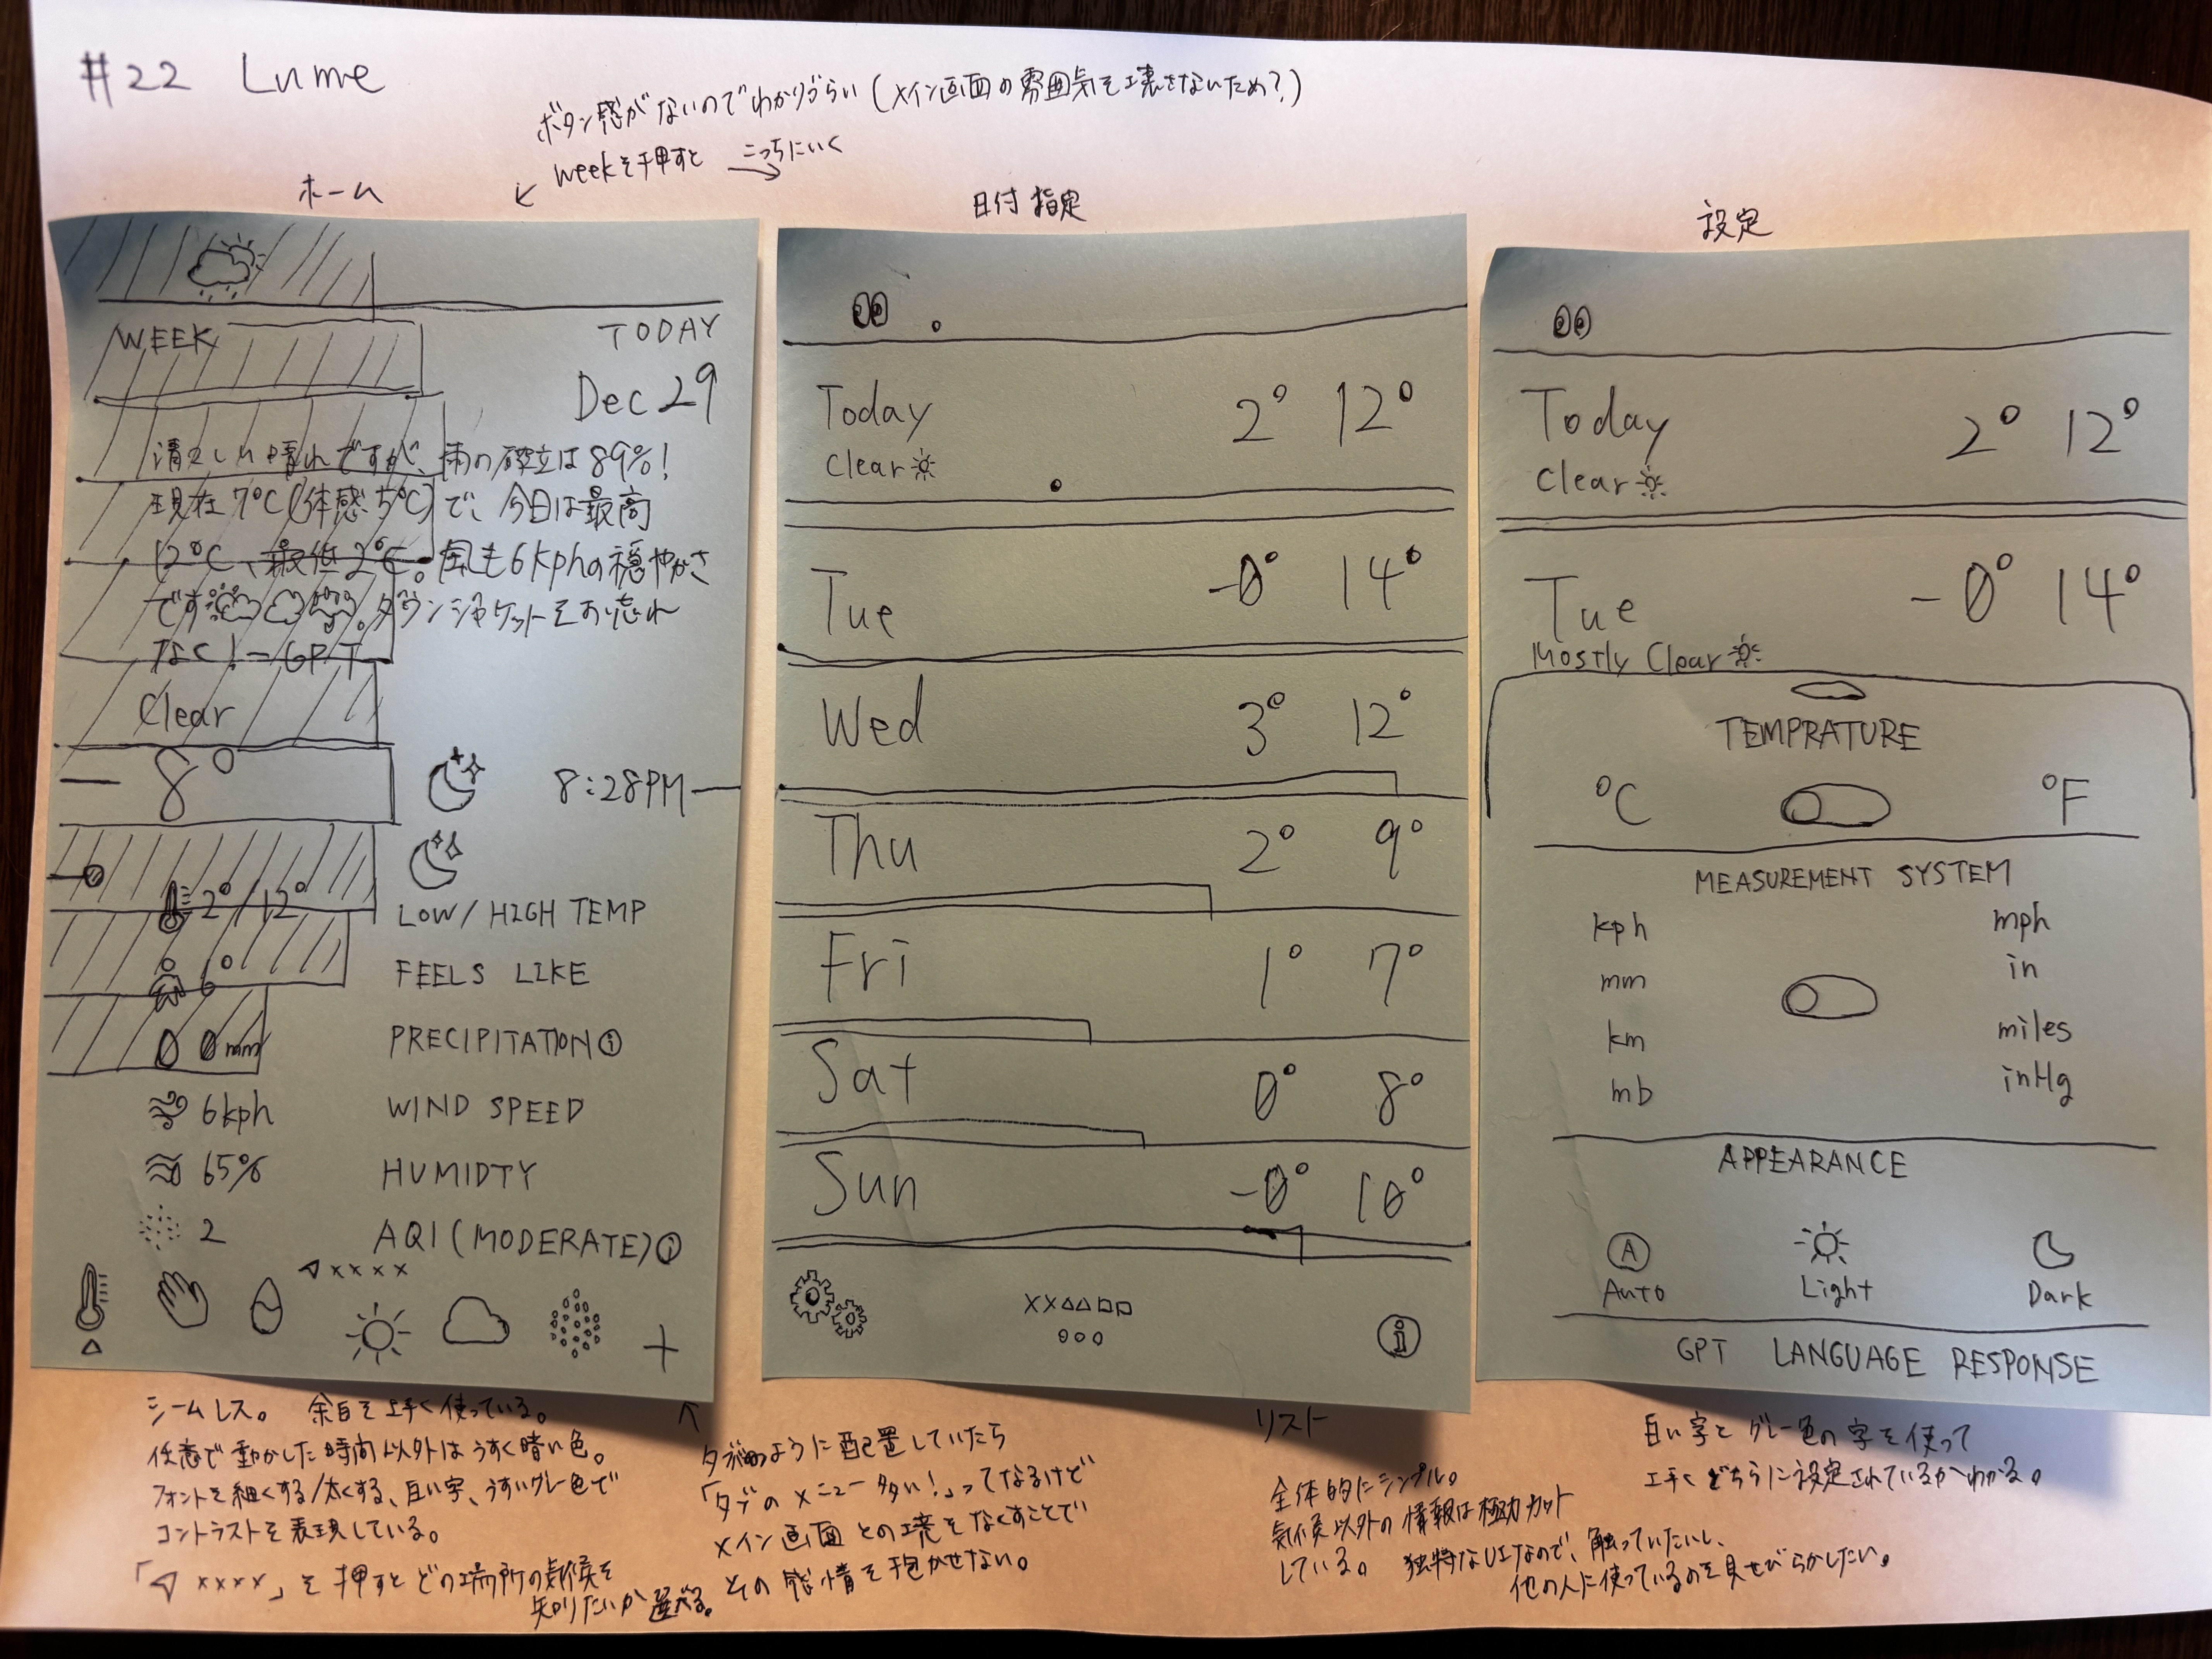 #22 Lume
ボタン感がないのでわかりづらい(メイン画面の雰囲気を壊さないため?)
weekを押すと → こっちにいく
ホーム
WEEK
TODAY
Dec 29
清々しい晴れですが、雨の確立は89%!
現在7℃(体感5℃)で、今日は最高
12℃、最低2℃。風も6kphの穏やかさ
です。ダウンジャケットをお忘れ
なく!ーGPT
Clear
8°
8:28PM
2°/12° LOW/HIGH TEMP
6° FEELS LIKE
0mm PRECIPITATION ⓘ
6kph WIND SPEED
65% HUMIDTY
2 AQI(MODERATE)ⓘ
××××
日付指定
Today 2° 12°
Clear
Tue -0° 14°
Wed 3° 12°
Thu 2° 9°
Fri 1° 7°
Sat 0° 8°
Sun -0° 10°
××△△□□
○○○
ⓘ
設定
Today 2° 12°
Clear
Tue -0° 14°
Mostly Clear
TEMPRATURE
℃ °F
MEASUREMENT SYSTEM
kph mph
mm in
km miles
mb inHg
APPEARANCE
A
Auto Light Dark
GPT LANGUAGE RESPONSE
シームレス。 余白を上手く使っている。
任意で動かした時間以外はうすく暗い色。
フォントを細くする/太くする、白い字、うすいグレー色で
コントラストを表現している。
「◁ ××××」を押すとどの場所の気候を
知りたいか選べる。
タブのように配置していたら
「タブのメニュー多い!」ってなるけど
メイン画面との境をなくすことで
その感情を抱かせない。
リスト
全体的にシンプル。
気候以外の情報は極力カット
している。 独特なUIなので、触っていたいし、
他の人に使っているのを見せびらかしたい。
白い字とグレー色の字を使って
上手くどちらに設定されているかわかる。